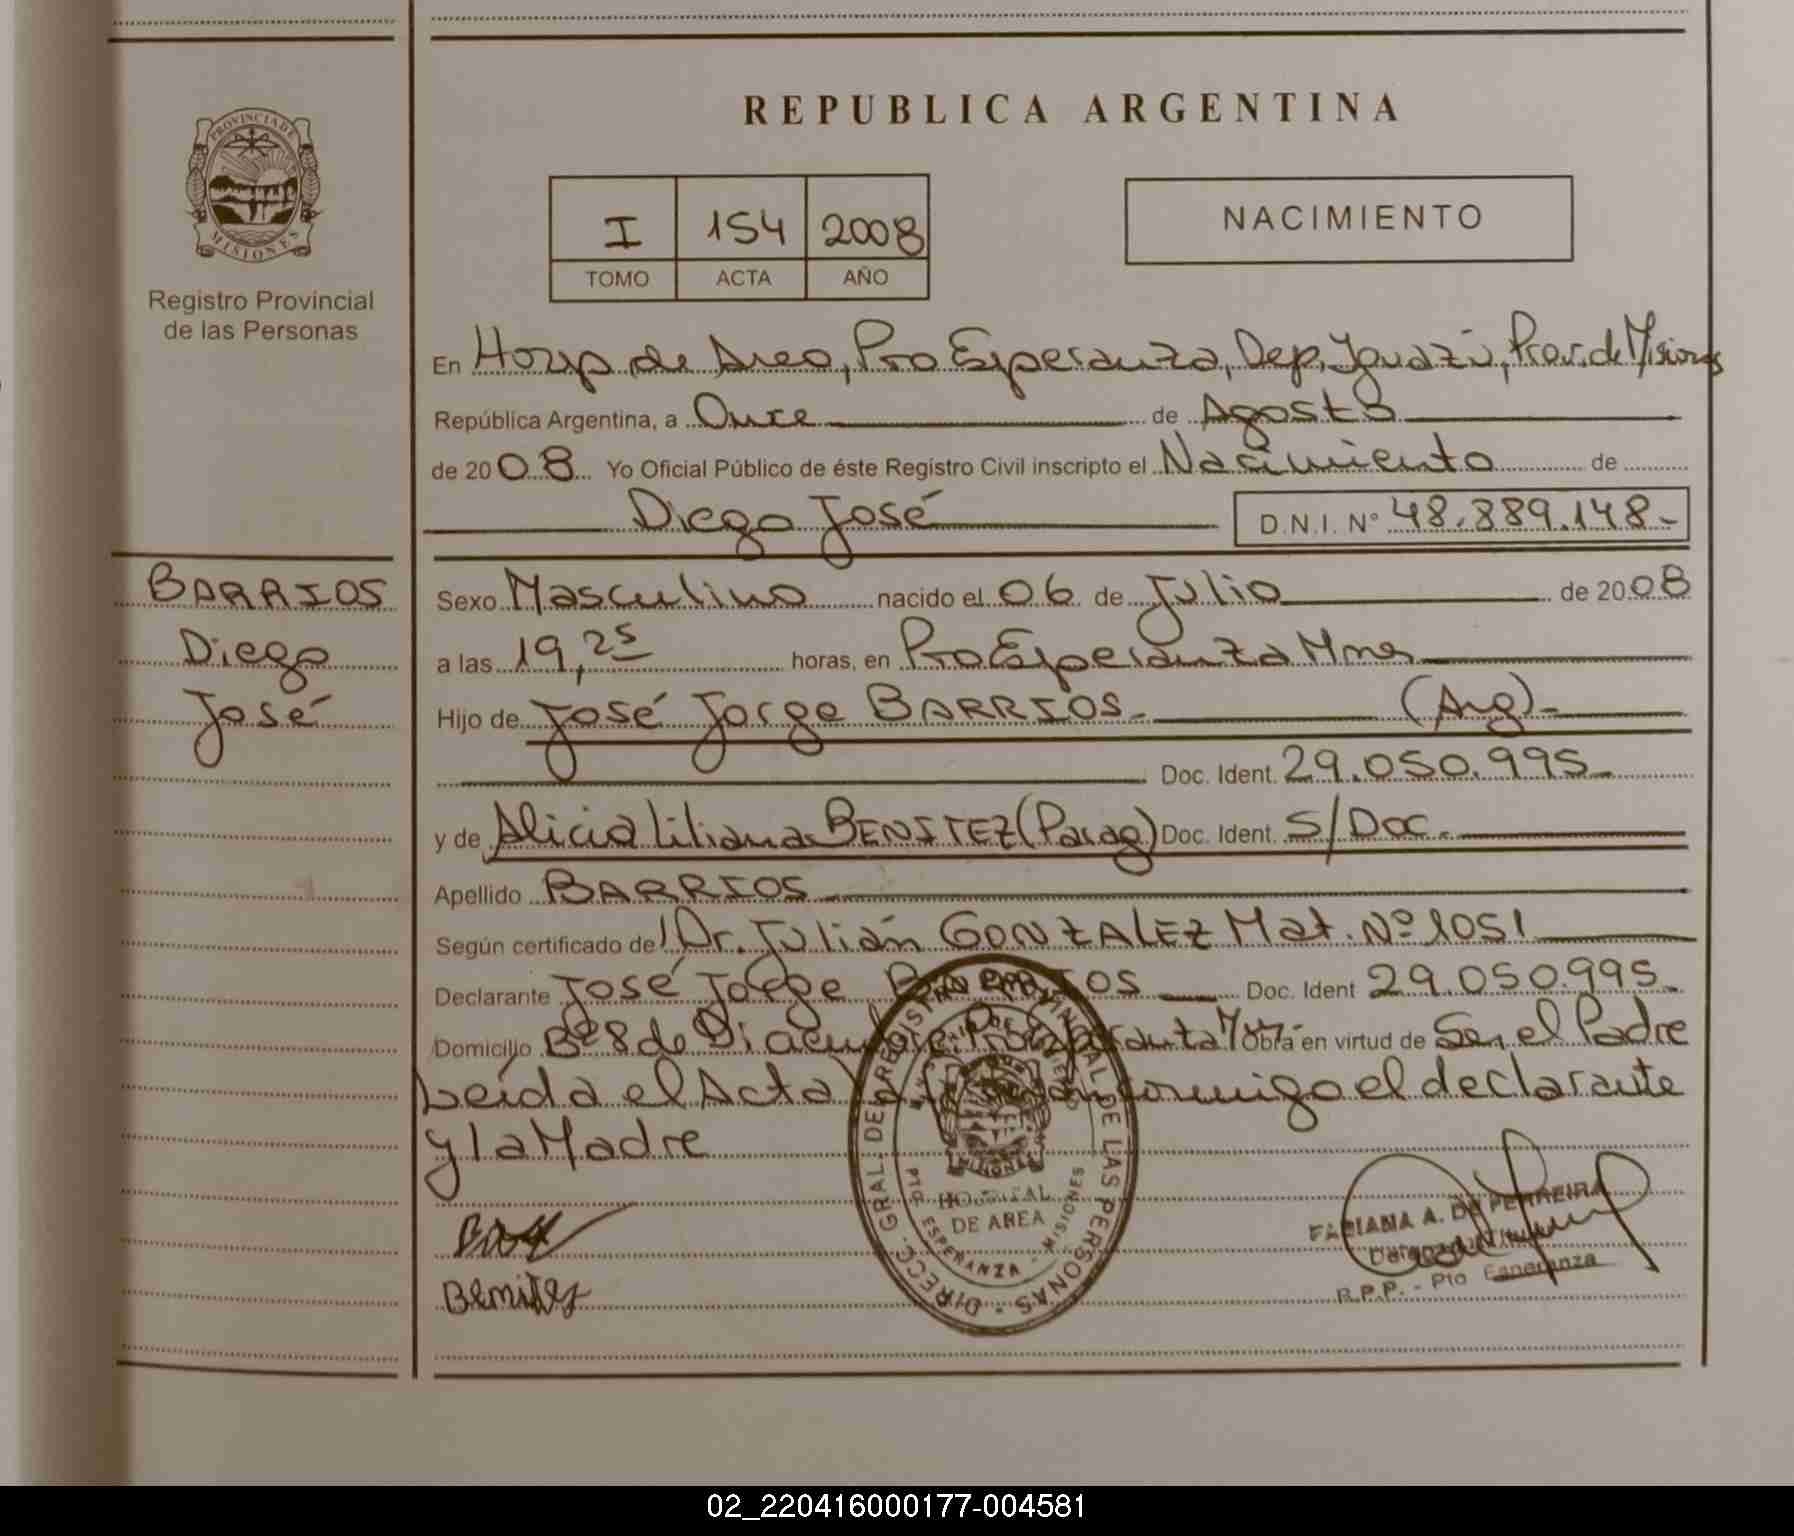 PROVINCIA DE
MISIONES
Registro Provincial
de las Personas
BARRIOS
Diego
José
REPUBLICA ARGENTINA
I 154 2008
TOMO ACTA AÑO
NACIMIENTO
En Hosp de Area, Pto Esperanza, Dep. Iguazú, Prov. de Misiones
República Argentina, a Once de Agosto
de 2008 Yo Oficial Público de éste Registro Civil inscripto el Nacimiento de
Diego José D.N.I. Nº 48.889.148.-
Sexo Masculino nacido el 06 de Julio de 2008
a las 19,25 horas, en Pto Esperanza Mnes
Hijo de José Jorge BARRIOS.- (Arg)-
Doc. Ident. 29.050.995.-
y de Alicia Liliana BENITEZ (Parag) Doc. Ident. S/Doc.
Apellido BARRIOS
Según certificado de Dr. Julián GONZALEZ Mat. Nº 1051
Declarante José Jorge BARRIOS Doc. Ident 29.050.995.-
Domicilio Bº 8 de Diciembre Pto Esperanza Obra en virtud de Ser el Padre
Leída el Acta la firman conmigo el declarante
y la Madre
Benitez
DIRECC. GRAL. DE REGISTRO PROVINCIAL DE LAS PERSONAS
MISIONES
HOSPITAL
DE AREA
PTO ESPERANZA - MISIONES
FABIANA A. DE FERREIRA
R.P.P. - Pto Esperanza
02_220416000177-004581